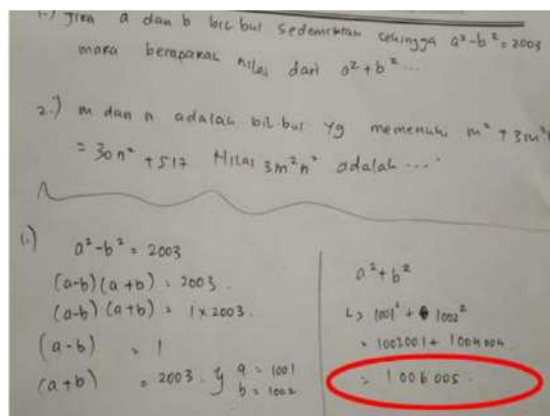 1.) Jika a dan b bil bul sedemikian sehingga a² - b² = 2003
maka berapakah nilai dari a² + b² ...
2.) m dan n adalah bil. bul yg memenuhi m² + 3m²n²
= 30n² + 517 Nilai 3m²n² adalah ....
1.)
a² - b² = 2003
(a-b)(a+b) = 2003.
(a-b) (a+b) = 1 x 2003.
(a-b) = 1
(a+b) = 2003. } a = 1001
b = 1002
a² + b²
↳ 1001² + 1002²
= 1002001 + 1004004
= 1006005.